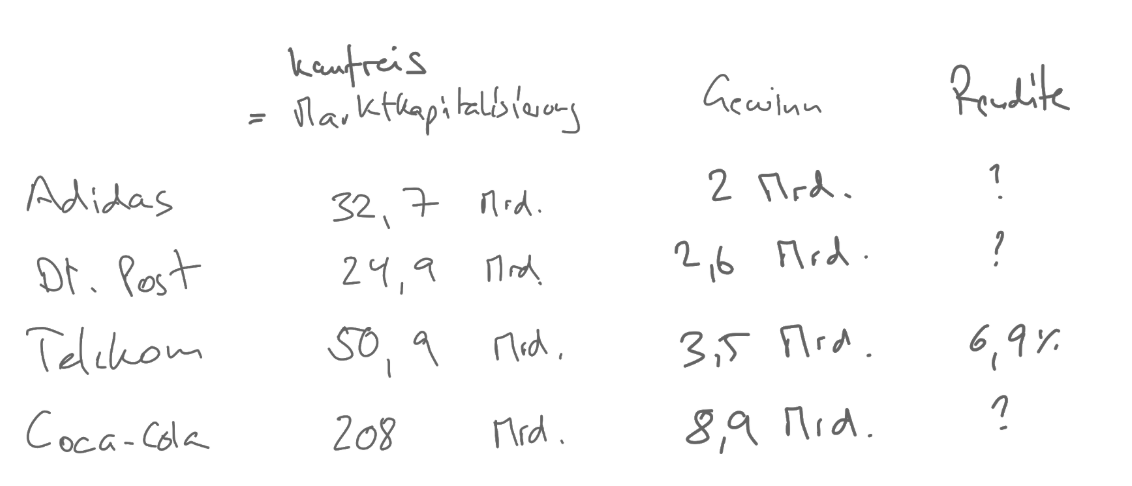 Kaufreis
= Marktkapitalisierung Gewinn Rendite
Adidas 32,7 Mrd. 2 Mrd. ?
Dt. Post 24,9 Mrd. 2,6 Mrd. ?
Telekom 50,9 Mrd. 3,5 Mrd. 6,9%
Coca-Cola 208 Mrd. 8,9 Mrd. ?